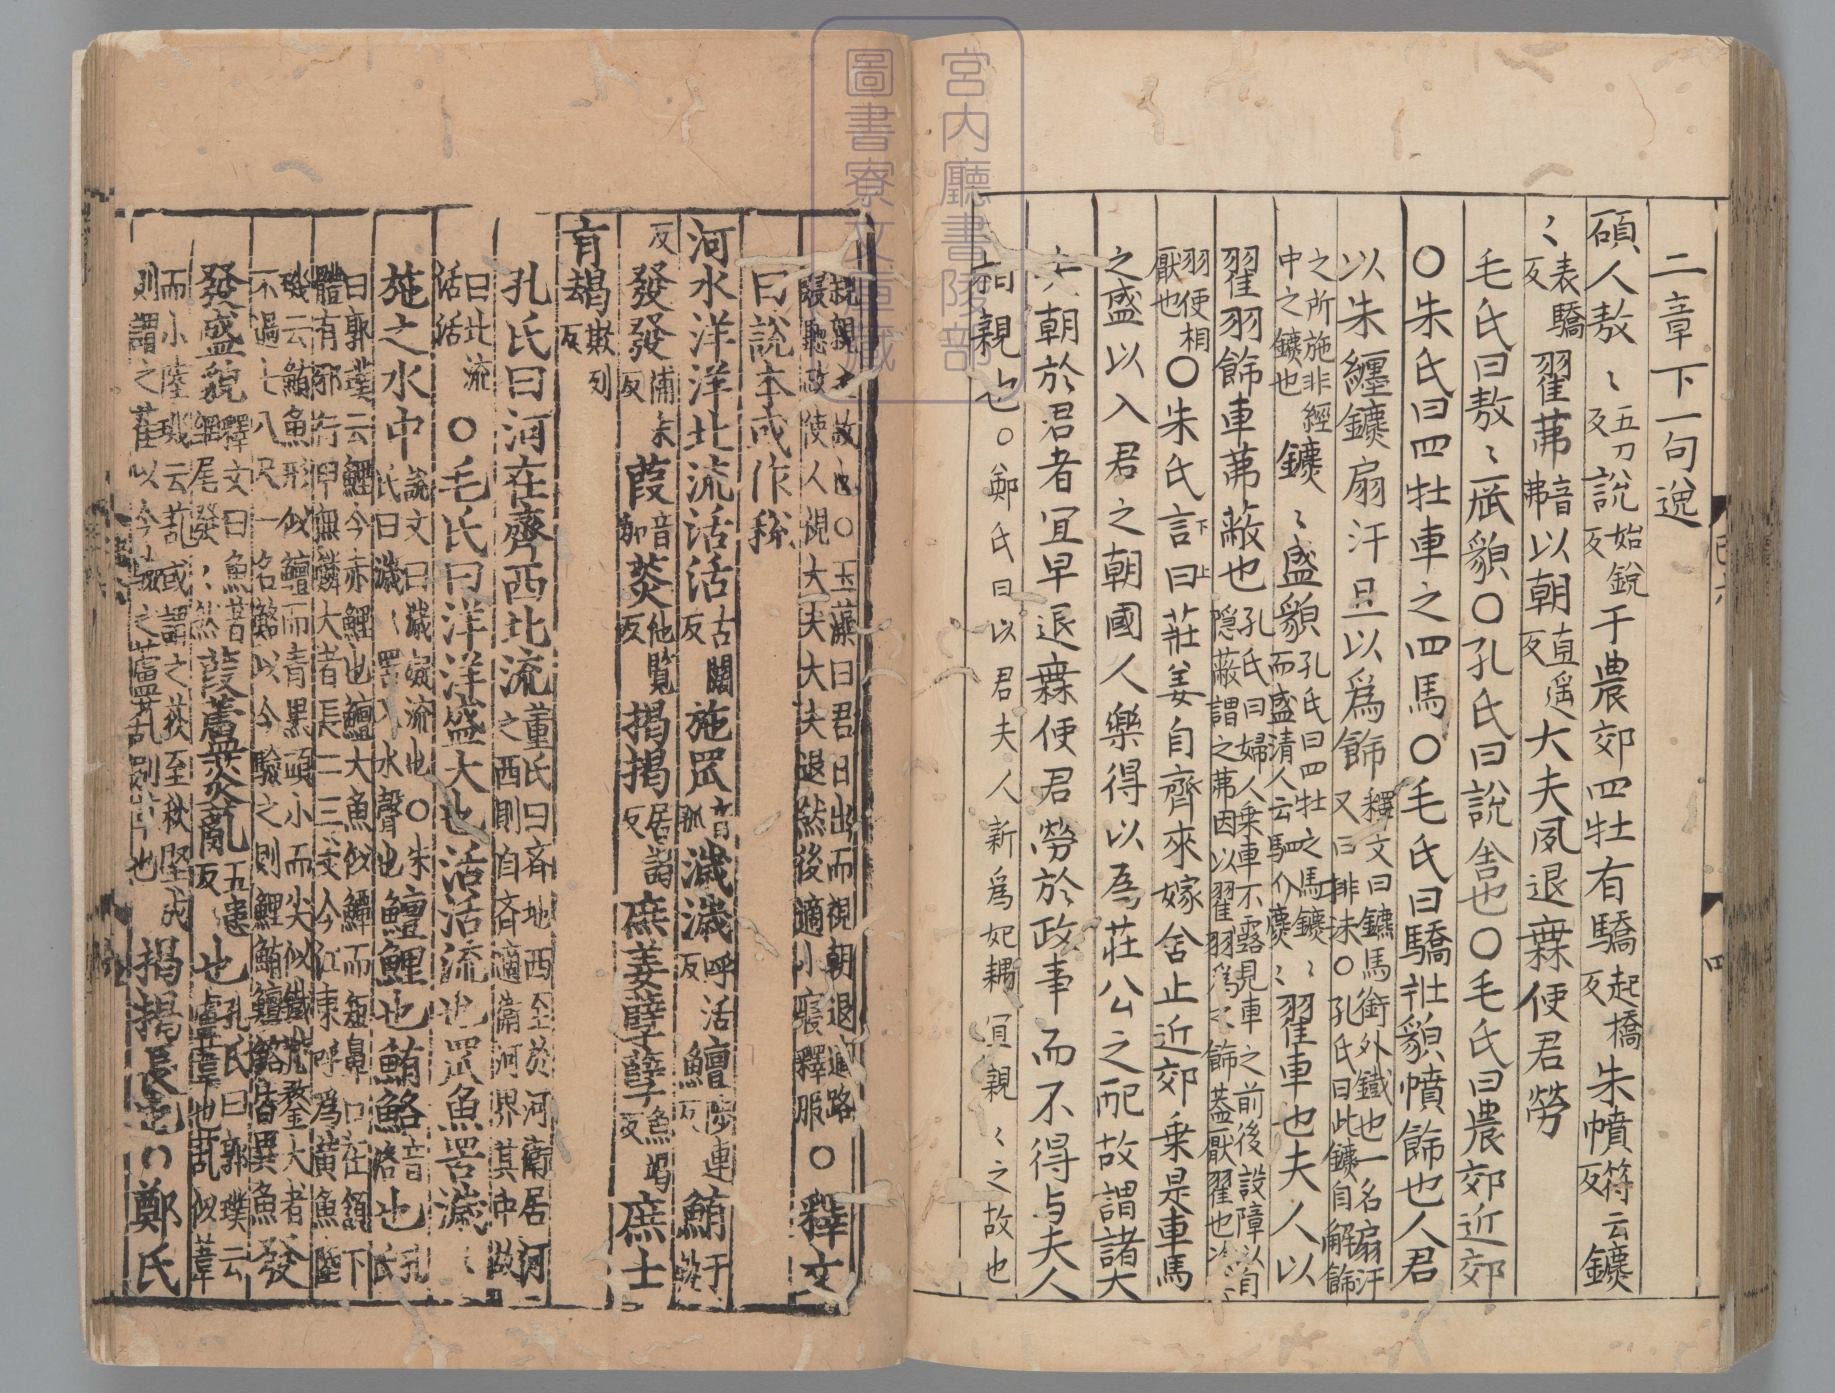 二章下一句逸
碩人敖〻五刀反說始銳反于農郊四牡有驕起橋反朱幩符云反鑣
〻表驕反翟茀音弗以朝直遥反大夫夙退無使君勞
毛氏曰敖〻長貌○孔氏曰說舍也○毛氏曰農郊近郊
○朱氏曰四牡車之四馬○毛氏曰驕壯貌幩飾也人君
以朱纏鑣扇汗且以爲飾釋文曰鑣馬銜外鐵也一名扇汗又曰排沫○孔氏曰此鑣自解飾
之所施非經中之鑣也鑣〻盛貌孔氏曰四牡之馬鑣〻而盛清人云駟介麃〻翟車也夫人以
翟羽飾車茀蔽也孔氏曰婦人乗車不露見車之前後設障以自隱蔽謂之茀因以翟羽爲之飾蓋厭翟也次
羽使相厭也○朱氏言曰莊姜自齊來嫁舍止近郊乗是車馬
之盛以入君之朝國人樂得以爲莊公之配故謂諸大
夫朝於君者宜早退無使君勞於政事而不得与夫人
相親也○鄭氏曰以君夫人新爲妃耦宜親〻之故也
親親之故也○玉藻曰君日出而視朝退適路寢聽政使人視大夫大夫退然後適小寢釋服○釋文
曰說本或作稅
河水洋洋北流活活古闊反施罛音孤濊濊呼活反鱣陟連反鮪于軌
反發發補末反葭音加菼他覧反揭揭居謁反庶姜孽孽魚竭反庶士
有朅欺列反
孔氏曰河在齊西北流董氏曰齊地西至於河衛居河之西則自齊適衛河界其中故
曰北流活活○毛氏曰洋洋盛大也活活流也罛魚罟濊〻
施之水中說文曰濊礙流也○朱氏曰濊〻罟入水聲也鱣鯉也鮪鮥音洛也孔氏
曰郭璞云鯉今赤鯉也鱣大魚似鱏而短鼻口在頷下體有邪行甲無鱗大者長二三丈今江東呼爲黃魚陸
璣云鮪魚形似鱣而青黒頭小而尖似鐵兜鍪大者不過七八尺一名鮥以今驗之則鯉鮪鱣鮥皆異魚發
發盛貌釋文曰魚著網尾發〻然葭蘆菼薍五患反也孔氏曰郭璞云蘆葦也薍似葦
而小陸璣云薍或謂之荻至秋堅成則謂之萑以今語之蘆薍別草也揭揭長也○鄭氏